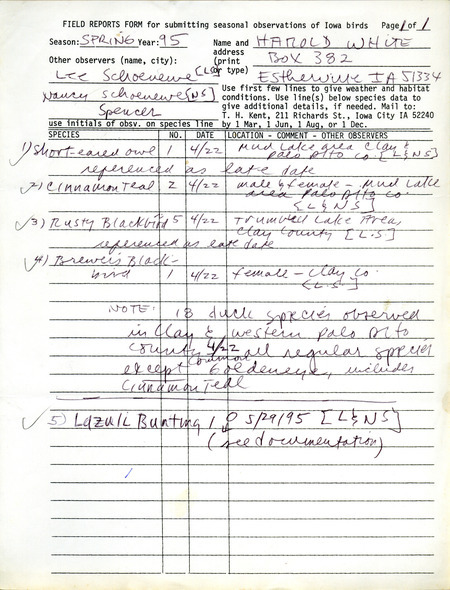 FIELD REPORTS FORM for submitting seasonal observations of Iowa birds Page 1 of 1
Season: SPRING Year: 95 Name and HAROLD WHITE
address BOX 382
Other observers (name, city): (print
Lee Schoenewe [LS] or type) Estherville IA 51334
Nancy Schoenewe [NS] Use first few lines to give weather and habitat
conditions. Use line(s) below species data to
Spencer give additional details, if needed. Mail to:
T. H. Kent, 211 Richards St., Iowa City IA 52240
use initials of obsv. on species line by 1 Mar, 1 Jun, 1 Aug, or 1 Dec.
SPECIES NO. DATE LOCATION - COMMENT - OTHER OBSERVERS
1) Short-eared owl 1 4/22 Mud Lake area Clay &
Palo Alto Co. [L&NS]
referenced as late date
2) Cinnamon Teal 2 4/22 male & female - Mud Lake
area Palo Alto Co.
[L&NS]
3) Rusty Blackbird 5 4/22 Trumbull Lake Area,
Clay County [L.S]
referenced as late date
4) Brewer's Black-
bird 1 4/22 female - Clay Co.
[L.S.]
NOTE: 18 duck species observed
in Clay & western Palo Alto
County 4/22 all regular species
except Common Goldeneye, includes
Cinnamon Teal
5) Lazuli Bunting 1 ♂ 5/29/95 [L&NS]
(see documentation)